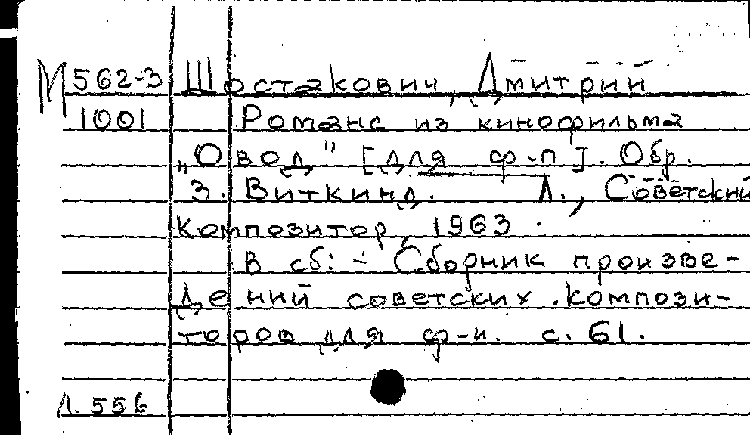 М 562-3 Шостакович, Дмитрий
1001 Романс из кинофильма
„Овод" [для ф-п]. Обр.
З. Виткинд. Л., Советский
композитор, 1963.
В сб: - Сборник произве-
дений советских компози-
торов для ф-п. с. 61.
Л. 556